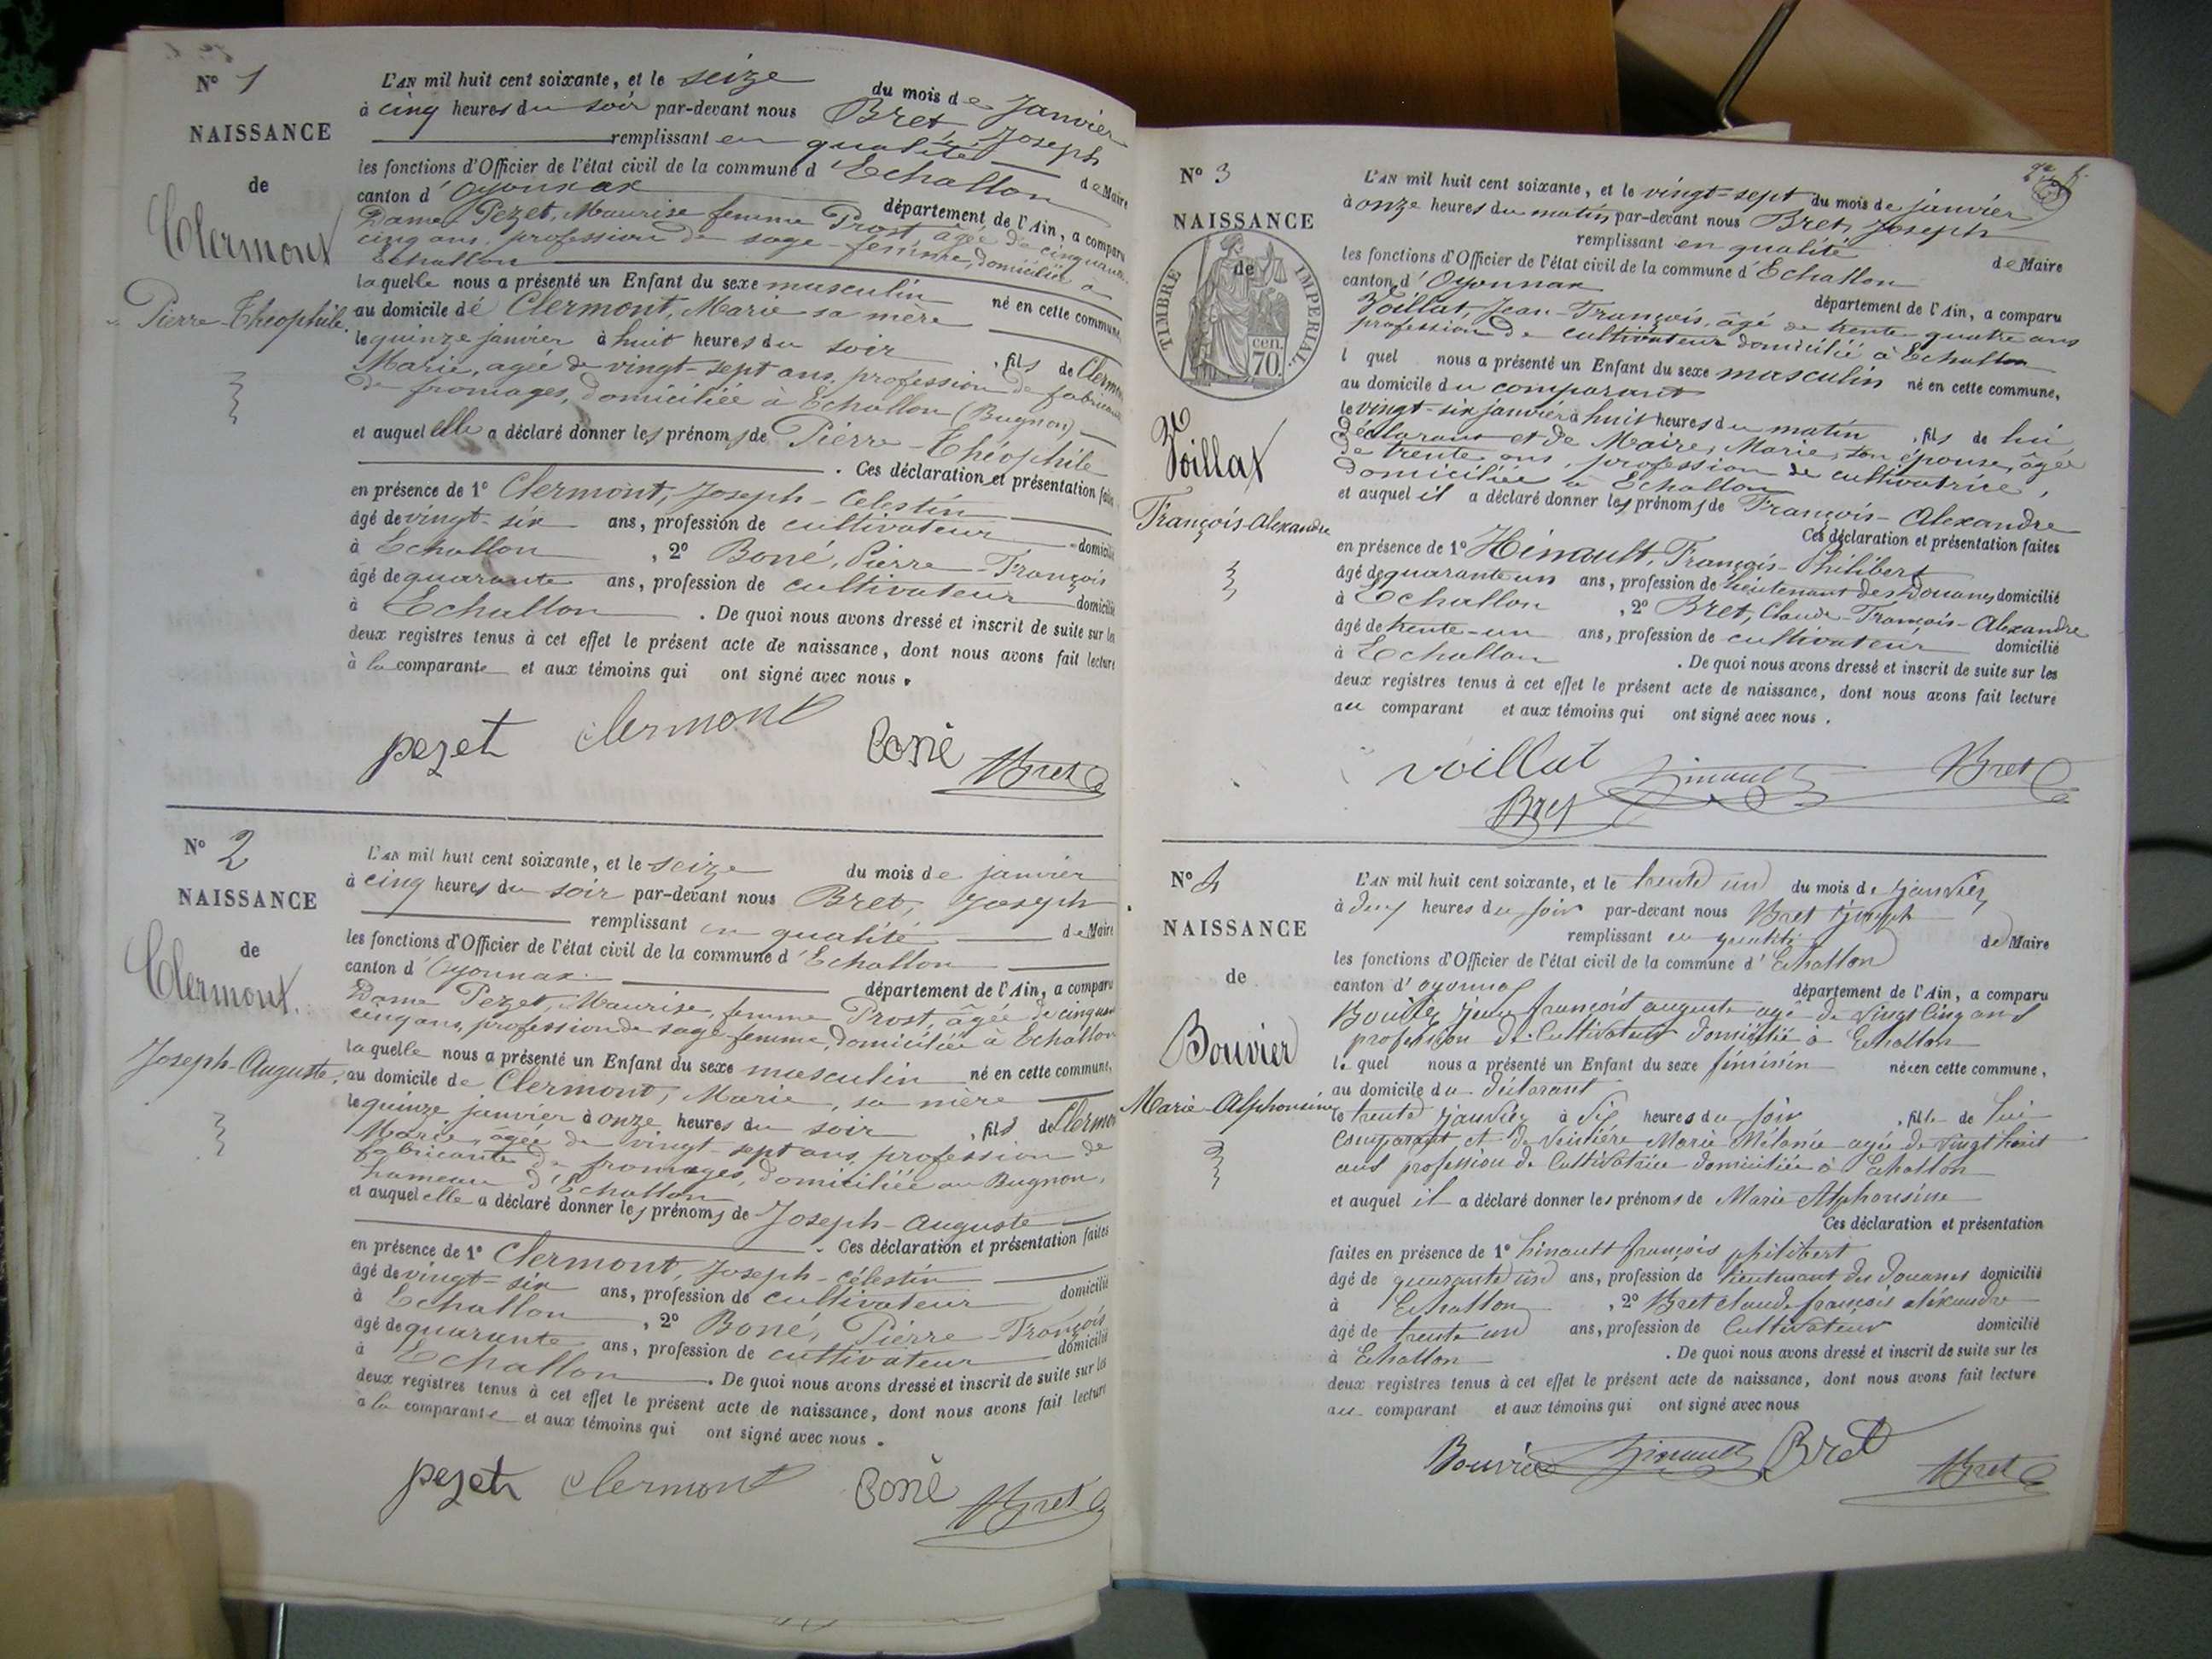 N° 1
NAISSANCE
de
Clermont
Pierre-Théophile.
L'AN mil huit cent soixante, et le seize du mois de Janvier
à cinq heures du soir par-devant nous Bret, Joseph
remplissant en qualité de Maire
les fonctions d'Officier de l'état civil de la commune d'Echallon
canton d'Oyonnax département de l'Ain, a comparu
Dame Pezet, Maurise femme Prost, âgée de cinquante
cinq ans, profession de sage-femme, domiciliée à
Echallon
laquelle nous a présenté un Enfant du sexe masculin né en cette commune,
au domicile de Clermont, Marie sa mère
le quinze janvier à huit heures du soir, fils de Clermont
Marie, agée de vingt-sept ans, profession de fabricante
de fromages, domiciliée à Echallon (Bugnon)
et auquel elle a déclaré donner les prénoms de Pierre-Théophile
. Ces déclaration et présentation faites
en présence de 1° Clermont, Joseph-Celestin
âgé de vingt-six ans, profession de cultivateur domicilié
à Echallon, 2° Boné, Pierre-François
âgé de quarante ans, profession de cultivateur domicilié
à Echallon. De quoi nous avons dressé et inscrit de suite sur les
deux registres tenus à cet effet le présent acte de naissance, dont nous avons fait lecture
à la comparante et aux témoins qui ont signé avec nous.
pezet Clermont Boné Bret
N° 2
NAISSANCE
de
Clermont.
Joseph-Auguste.
L'AN mil huit cent soixante, et le seize du mois de janvier
à cinq heures du soir par-devant nous Bret, Joseph
remplissant en qualité de Maire
les fonctions d'Officier de l'état civil de la commune d'Echallon
canton d'Oyonnax département de l'Ain, a comparu
Dame Pezet, Maurise, femme Prost, âgée de cinquante
cinq ans, profession de sage-femme, domiciliée à Echallon
laquelle nous a présenté un Enfant du sexe masculin né en cette commune,
au domicile de Clermont, Marie, sa mère
le quinze janvier à onze heures du soir, fils de Clermont
Marie, âgée de vingt-sept ans, profession de
fabricante de fromages, domiciliée au Bugnon,
hameau d'Echallon
et auquel elle a déclaré donner les prénoms de Joseph-Auguste
. Ces déclaration et présentation faites
en présence de 1° Clermont, Joseph-Célestin
âgé de vingt-six ans, profession de cultivateur domicilié
à Echallon, 2° Boné, Pierre-François
âgé de quarante ans, profession de cultivateur domicilié
à Echallon. De quoi nous avons dressé et inscrit de suite sur les
deux registres tenus à cet effet le présent acte de naissance, dont nous avons fait lecture
à la comparante et aux témoins qui ont signé avec nous.
pezet Clermont Boné Bret
N° 3
NAISSANCE
de
TIMBRE IMPERIAL.
70. cen.
Voillat
François-Alexandre
L'AN mil huit cent soixante, et le vingt-sept du mois de janvier
à onze heures du matin par-devant nous Bret, Joseph
remplissant en qualité de Maire
les fonctions d'Officier de l'état civil de la commune d'Echallon
canton d'Oyonnax département de l'Ain, a comparu
Voillat, Jean-François, âgé de trente-quatre ans
profession de cultivateur domicilié à Echallon
l quel nous a présenté un Enfant du sexe masculin né en cette commune,
au domicile du comparant
le vingt-six janvier à huit heures du matin, fils de lui
déclarant et de Maire, Marie, son épouse, âgée
de trente ans, profession de cultivatrice,
domiciliée à Echallon
et auquel il a déclaré donner les prénoms de François-Alexandre
Ces déclaration et présentation faites
en présence de 1° Hinault, François-Philibert
âgé de quarante un ans, profession de lieutenant des Douanes domicilié
à Echallon, 2° Bret, Claude-François-Alexandre
âgé de trente-un ans, profession de cultivateur domicilié
à Echallon. De quoi nous avons dressé et inscrit de suite sur les
deux registres tenus à cet effet le présent acte de naissance, dont nous avons fait lecture
au comparant et aux témoins qui ont signé avec nous.
Voillat hinault Bret
Bret
N° 4
NAISSANCE
de
Bouvier
Marie-Alphonsine
L'AN mil huit cent soixante, et le trente un du mois de janvier
à deux heures du soir par-devant nous Bret joseph
remplissant en qualité de Maire
les fonctions d'Officier de l'état civil de la commune d'Echallon
canton d'oyonnax département de l'Ain, a comparu
Bouvier jean françois auguste agé de vingt cinq ans
profession de Cultivateur domicilié à Echallon
le quel nous a présenté un Enfant du sexe féminin né en cette commune,
au domicile du déclarant
le trente janvier à six heures du soir, fille de lui
comparant et de Marie Mélanie agée de vingt huit
ans profession de Cultivatrice domiciliée à Echallon
et auquel il a déclaré donner les prénoms de Marie Alphonsine
Ces déclaration et présentation
faites en présence de 1° hinault françois philibert
âgé de quarante un ans, profession de lieutenant des douanes domicilié
à Echallon, 2° Bret claude françois aléxandre
âgé de trente un ans, profession de Cultivateur domicilié
à Echallon. De quoi nous avons dressé et inscrit de suite sur les
deux registres tenus à cet effet le présent acte de naissance, dont nous avons fait lecture
au comparant et aux témoins qui ont signé avec nous
Bouvier hinault Bret Bret